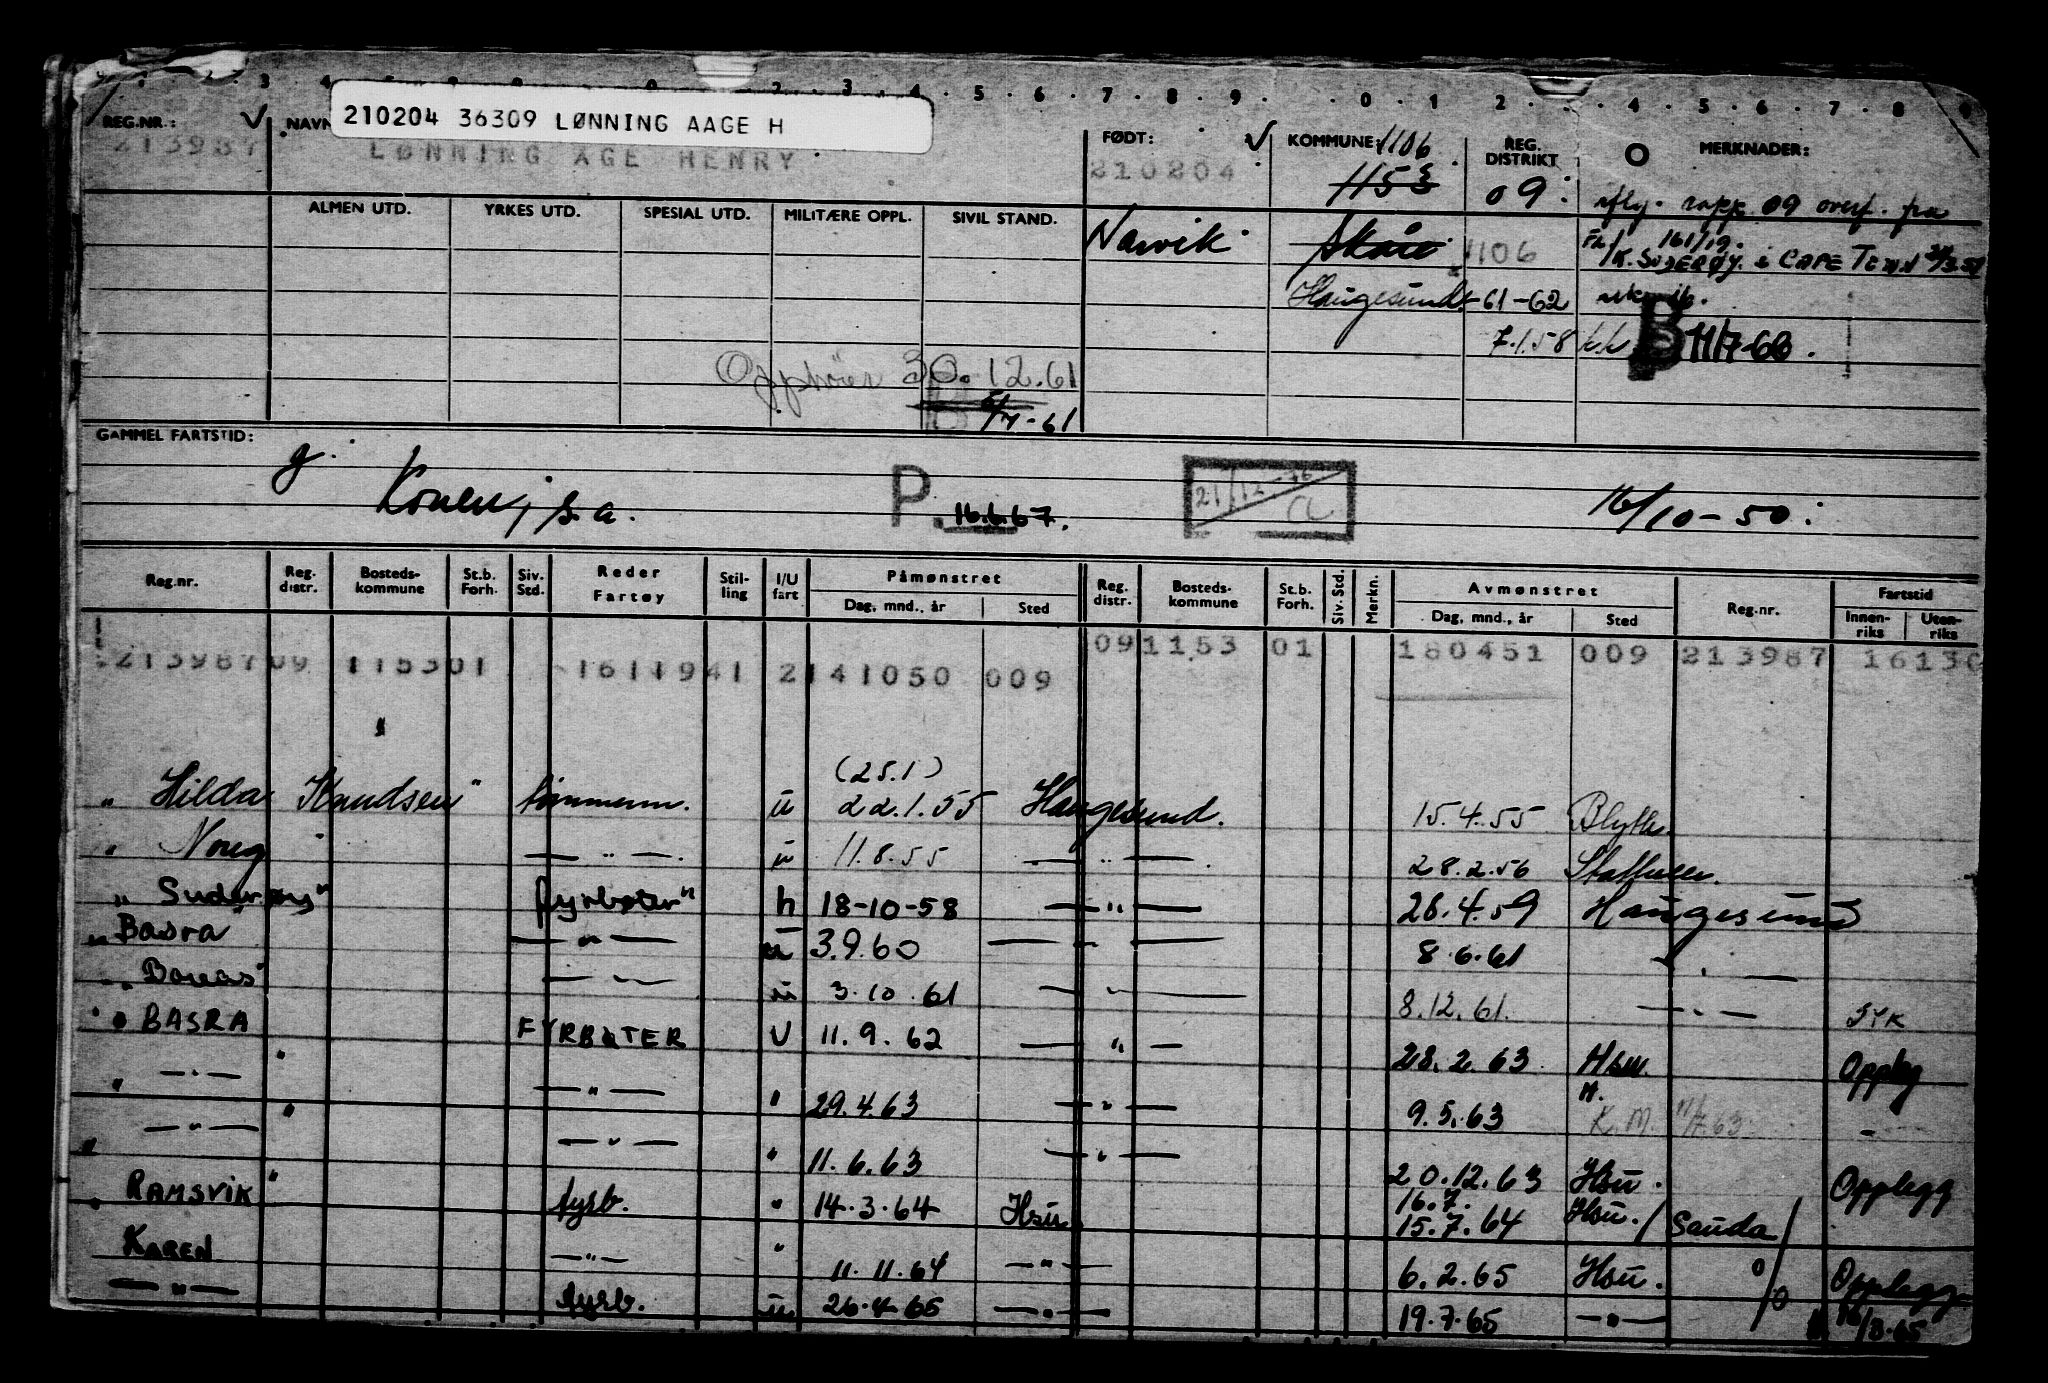 210204 36309 LØNNING AAGE H
REG.NR.: NAVN FØDT: KOMMUNE 1106 REG. DISTRIKT O MERKNADER:
213987 LØNNING ÅGE HENRY 210204 1153 09
rapp. 09 overf. fra
ALMEN UTD. YRKES UTD. SPESIAL UTD. MILITÆRE OPPL. SIVIL STAND. Narvik Skåre 1106 161/19.
K. SUDERØY. i CAPE TOWN
Haugesund 61-62
7.1.58 B 11/7-66.
Opphører 30.12.61
5/7-61
GAMMEL FARTSTID:
g.
Konen, s.a. P. 16.6.67. 21/12-76 16/10-50.
Reg.nr. Reg. distr. Bosteds-kommune St.b. Forh. Siv. Std. Reder Fartøy Stil-ling I/U fart Påmønstret Dag, mnd., år Sted Reg. distr. Bosteds-kommune St.b. Forh. Siv. Std. Merkn. Avmønstret Dag, mnd., år Sted Reg.nr. Fartstid Innen-riks Uten-riks
213987 09 1153 01 1611941 2 141050 009 09 1153 01 180451 009 213987 16130
(25.1)
" Hilda Knudsen" tømmerm. u 22.1.55 Haugesund. 15.4.55 Blyth.
" Noreg" — " — u 11.8.55 — " — 28.2.56
" Suderøy" fyrbøter" h 18-10-58 — " — 26.4.59 Haugesund
" Basra" — " — u 3.9.60 — " — 8.6.61 — " —
" Boreas" — " — u 3.10.61 — " — 8.12.61. — " — SYK
" BASRA" FYRBØTER U 11.9.62 — " — 28.2.63 Hsu. Opplag
" — " — " — " — " 29.4.63 — " — 9.5.63 H. K.M. 11/7.63 -
" — " — " — " — " 11.6.63 — " — 20.12.63 Hsu. Opplegg
" RAMSVIK" fyrb. " 14.3.64 Hsu 16.7. 15.7.64 Hsu. / Sauda /
KAREN — " — " 11.11.64 — " — 6.2.65 Hsu. o Opplegg
— " — fyrb. u 26.4.65 — " — 19.7.65 — " — o 16/3.65